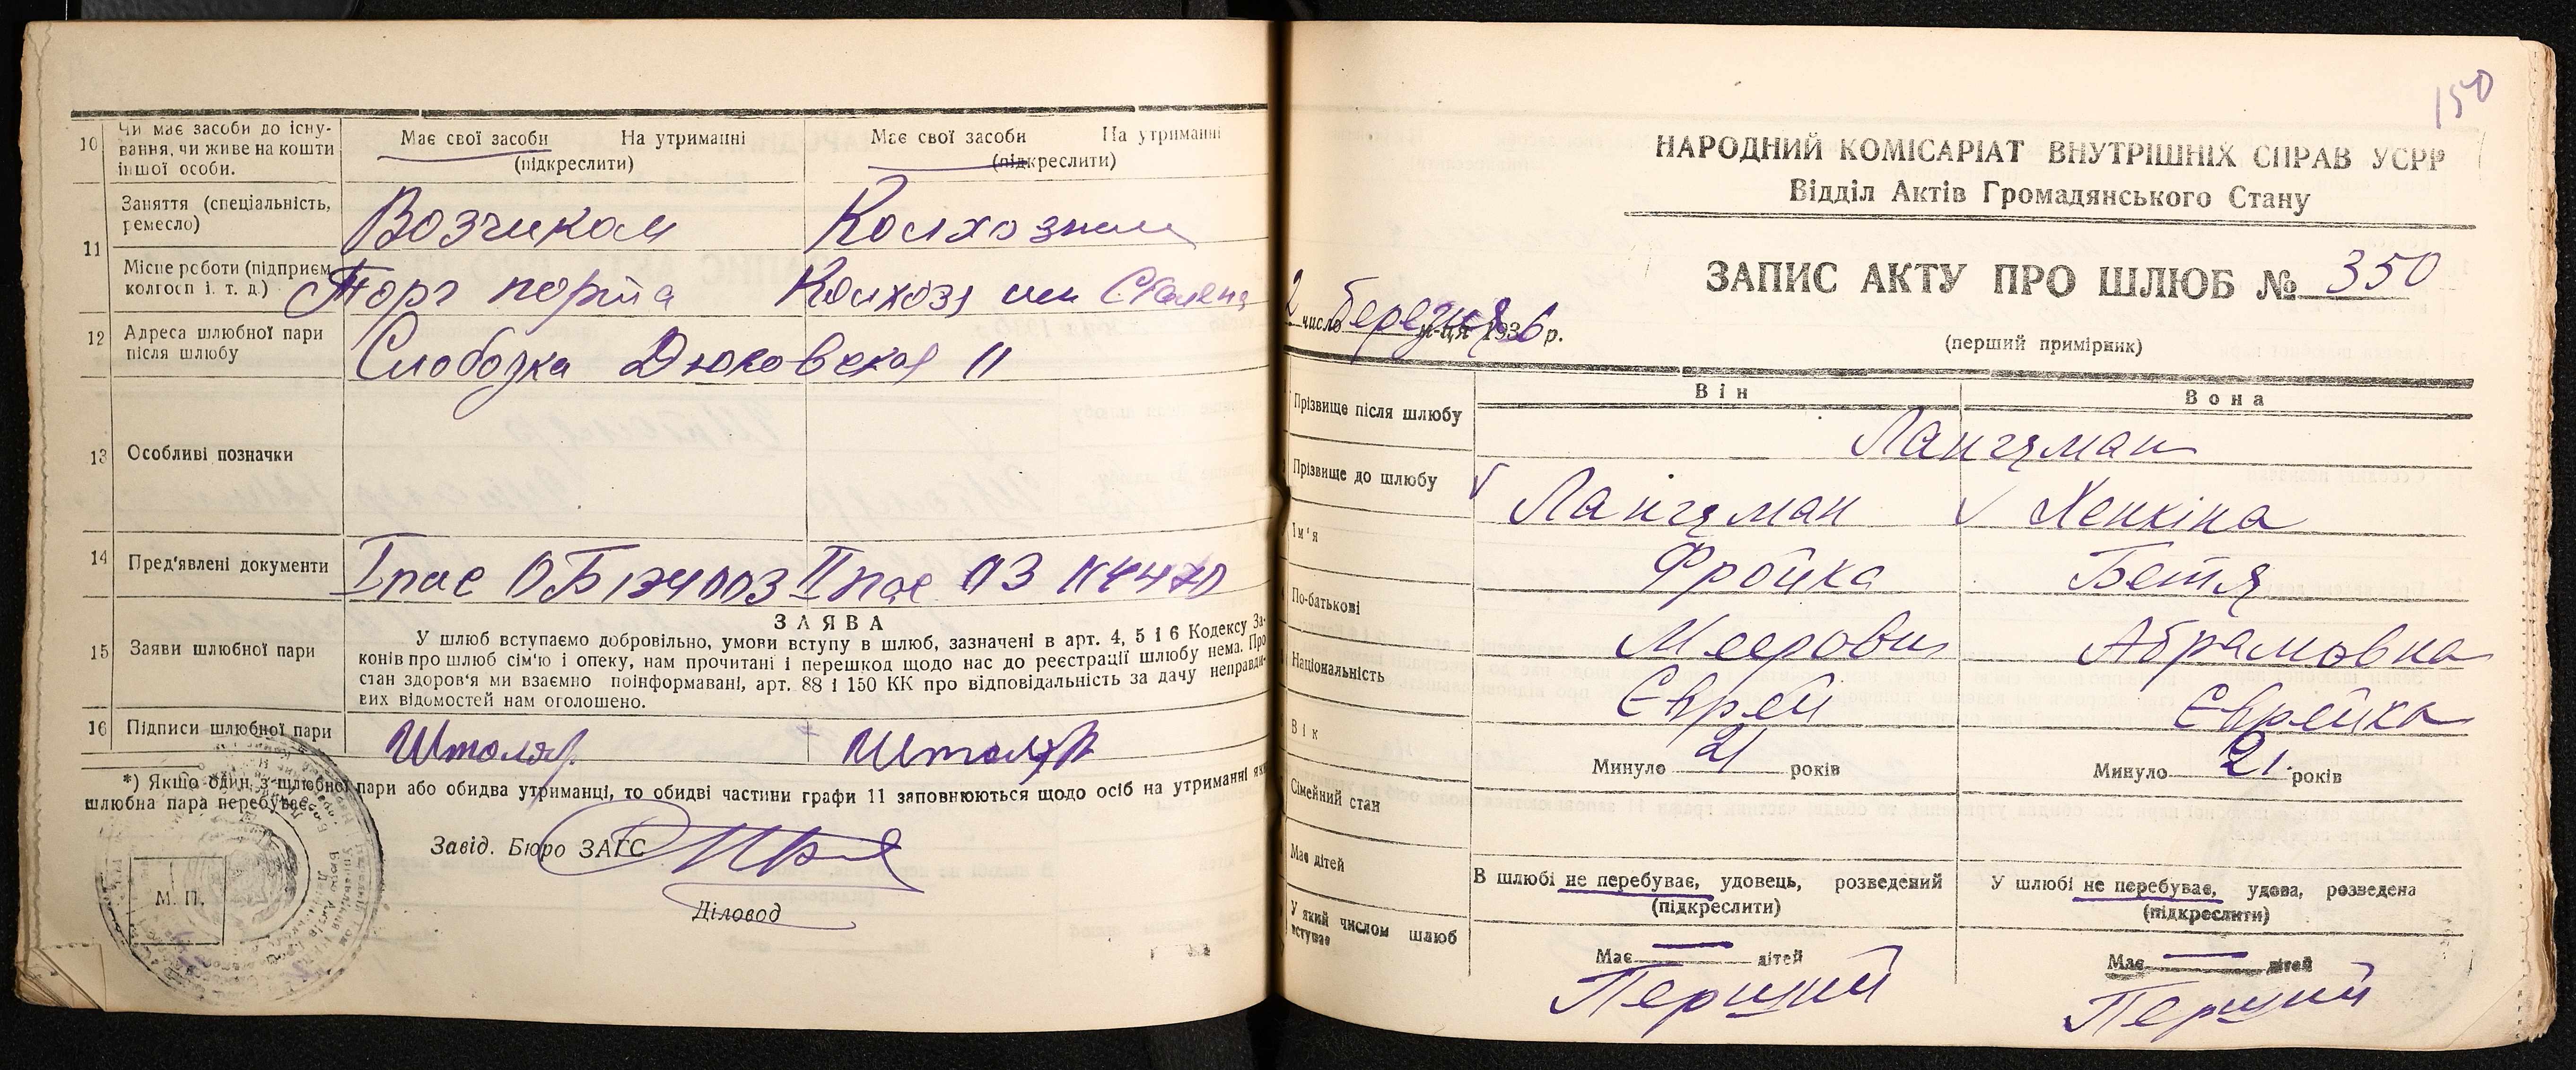 10
Чи має засоби до існу-
вання, чи живе на кошти
іншої особи.
Має свої засоби На утриманні
(підкреслити)
Має свої засоби На утриманні
(підкреслити)
11
Заняття (спеціальність,
ремесло)
Возчиком
Місце роботи (підприєм.
колгосп і. т. д.)
Торг порта
Колхозз им Сталена
12
Адреса шлюбної пари
після шлюбу
Слободка Дюковская 11
13
Особливі позначки
14
Пред'явлені документи
I пас ОБ II пас ОЗ
15
Заяви шлюбної пари
ЗАЯВА
У шлюб вступаємо добровільно, умови вступу в шлюб, зазначені в арт. 4, 5 і 6 Кодексу За-
конів про шлюб сім'ю і опеку, нам прочитані і перешкод щодо нас до реєстрації шлюбу нема. Про
стан здоров'я ми взаємно поінформавані, арт. 88 і 150 КК про відповідальність за дачу неправди-
вих відомостей нам оголошено.
16
Підписи шлюбної пари
Штоляр Штоляр
*) Якщо один з шлюбної пари або обидва утриманці, то обидві частини графи 11 заповнюються щодо осіб на утриманні яких
шлюбна пара перебуває.
Завід. Бюро ЗАГС
М. П.
Діловод
150
НАРОДНИЙ КОМІСАРІАТ ВНУТРІШНІХ СПРАВ УСРР
Відділ Актів Громадянського Стану
ЗАПИС АКТУ ПРО ШЛЮБ № 350
2 число березня м-ця 1936 р.
(перший примірник)
Він Вона
Прізвище після шлюбу
Лангзман
Прізвище до шлюбу
Лангзман Хенкіна
Ім'я
Фройка Бетя
По-батькові
Меерович Абрамовна
Національність
Єврей Єврейка
Вік
Минуло 21 років
Минуло 21 років
Сімейний стан
В шлюбі не перебуває, удовець, розведений
(підкреслити)
У шлюбі не перебуває, удова, розведена
(підкреслити)
Має дітей
Має — дітей
Має — дітей
У який числом шлюб
вступає
Перший Перший